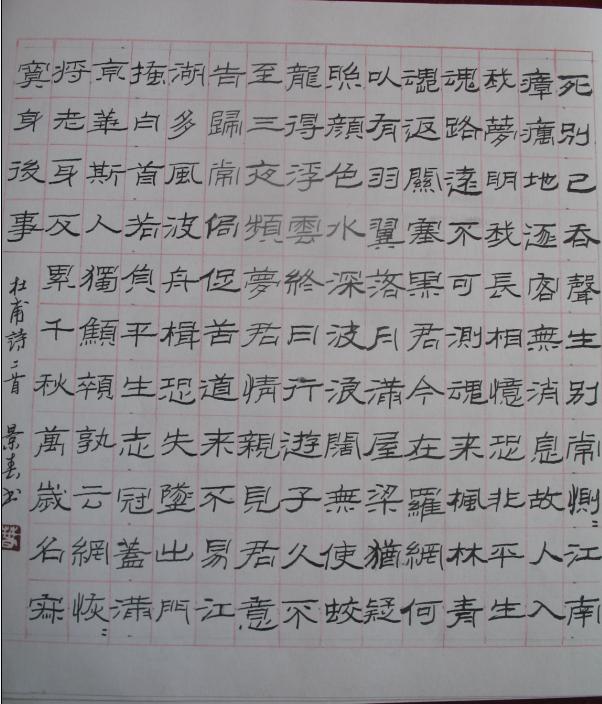 死别已吞聲生别常惻〻江南
瘴癘地逐客無消息故人入
我夢明我長相憶恐非平生
魂路遠不可測魂来楓林青
魂返關塞黑君今在羅網何
以有羽翼落月滿屋梁猶疑
照顔色水深波浪闊無使蛟
龍得浮雲終日行遊子久不
至三夜頻夢君情親見君意
告歸常侷促苦道来不易江
湖多風波舟楫恐失墜出門
搔白首若負平生志冠蓋滿
京華斯人獨顦顇孰云網恢〻
将老身反累千秋萬歲名寂
寞身後事
杜甫詩二首 景春书